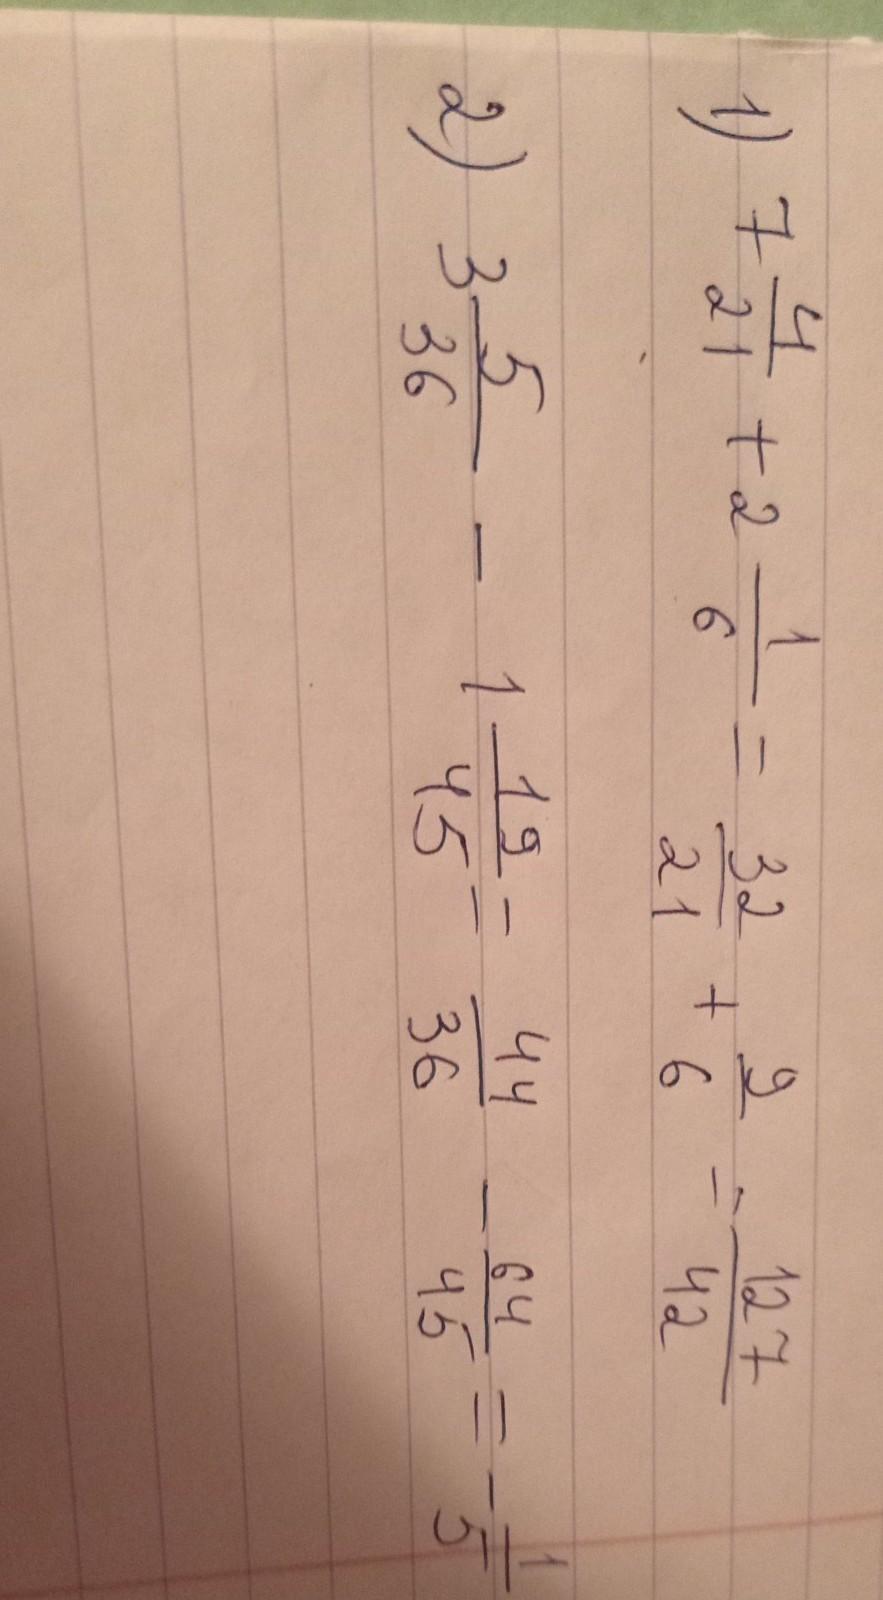 1) 7 4/21 + 2 1/6 = 32/21 + 9/6 = 127/42
2) 3 5/36 - 1 19/45 = 44/36 - 64/45 = - 1/5